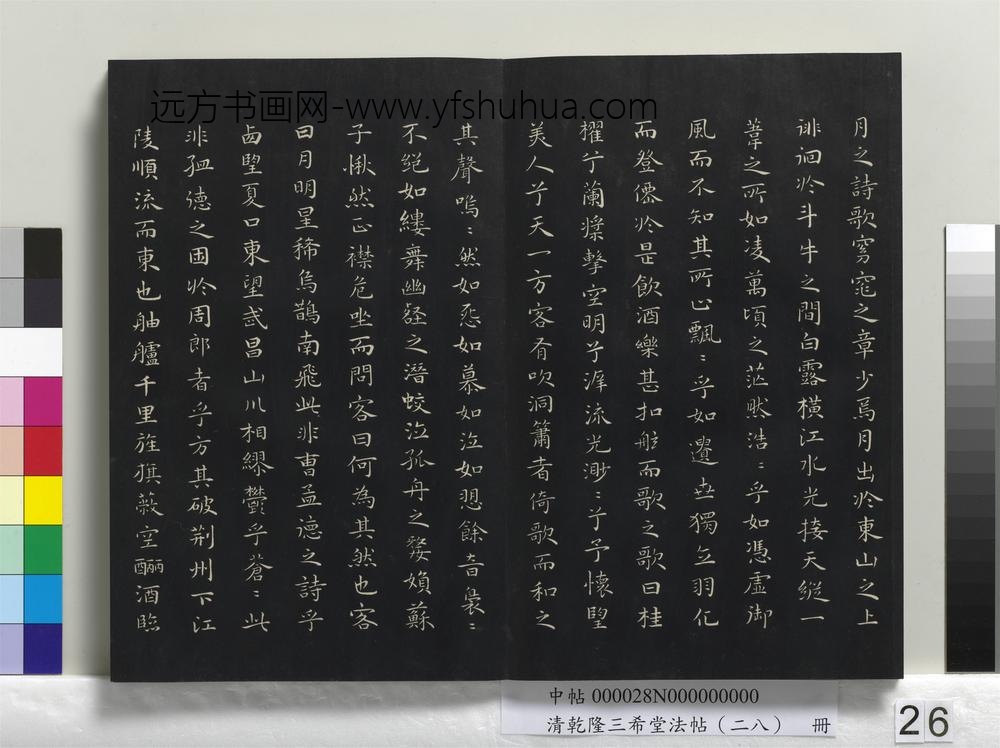 远方书画网-www.yfshuhua.com
月之詩歌窈窕之章少焉月出於東山之上
徘徊於斗牛之間白露橫江水光接天縱一
葦之所如凌萬頃之茫然浩〻乎如馮虛御
風而不知其所止飄〻乎如遺世獨立羽化
而登僊於是飲酒樂甚扣舷而歌之歌曰桂
櫂兮蘭槳擊空明兮泝流光渺〻兮予懷望
美人兮天一方客有吹洞簫者倚歌而和之
其聲嗚〻然如怨如慕如泣如愬餘音裊〻
不絕如縷舞幽壑之潛蛟泣孤舟之嫠婦蘇
子愀然正襟危坐而問客曰何為其然也客
曰月明星稀烏鵲南飛此非曹孟德之詩乎
西望夏口東望武昌山川相繆鬱乎蒼〻此
非孟德之困於周郎者乎方其破荊州下江
陵順流而東也舳艫千里旌旗蔽空釃酒臨
中帖 000028N000000000
清乾隆三希堂法帖（二八） 冊
26